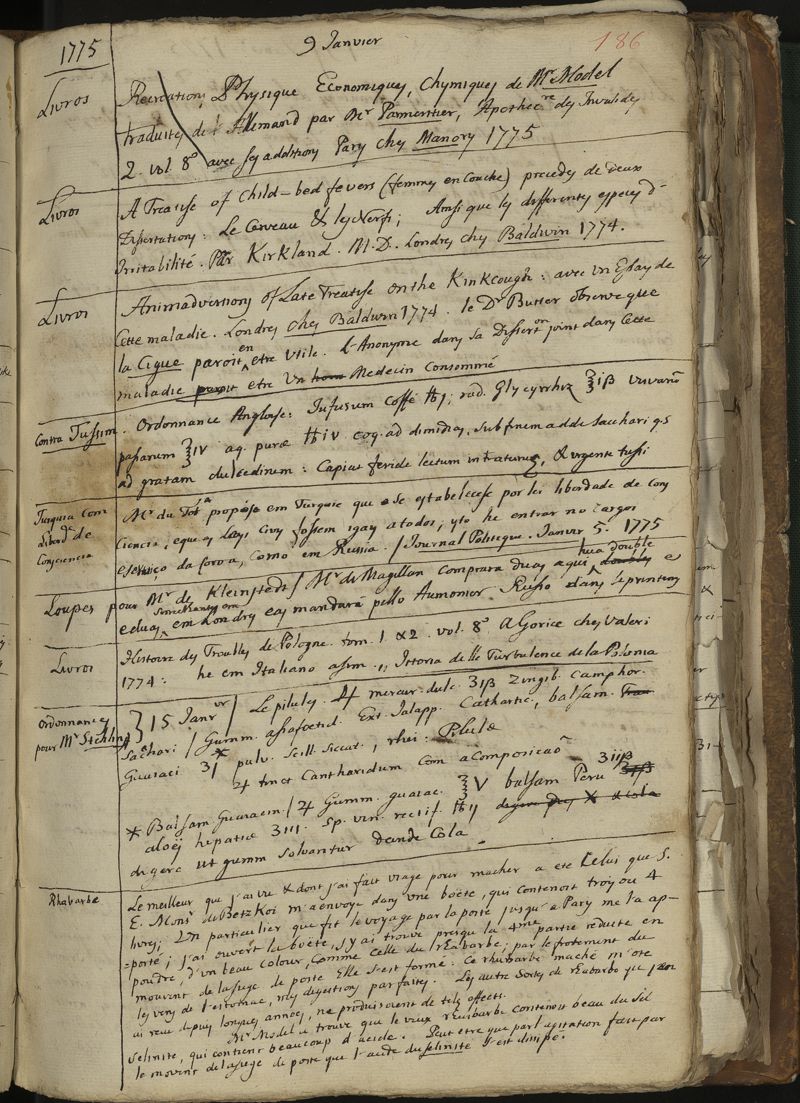 1775
9 Janvier
186
Livros
Recreations Physiques Economiques, Chymiques de Mr Model
traduites de l'Allemand par Mr Parmentier, Apothecre des Invalides
2. vol. 8º avec ses additions Parys chez Manory 1775
Livros
A Treatise of Child-bed fevers (femmes en Couche) precedés de deux
Dissertations: Le Cerveau & les Nerfs; Ainsi que les differentes especes d'
Irritabilité. Par Kirkland. M.D. Londres chez Baldwin 1774.
Livros
Animadversions of Late Treatise on the Kinkcough: avec un Essay de
Cette maladie. Londres chez Baldwin 1774. le Dr Butter observe que
la Cigue paroit en etre utile. L'Anonyme dans sa Dissert on joint dans Cette
maladie paroit etre Un hom Medecin Consommé
Contra Tussim.
Ordonnance Angloise: Infusum Coffé ℔j; rad. Glycyrrhiz ℥iβ uvarum
passarum ℥iv aq. puræ ℔iv coq. ad dimidias, sub finem adde sacchari q.s
ad gratam dulcedinem: Capiat feride lectum intraturus, & urgente tussi
Turquia com
Liberde de
Consciencia
Mr du Tot propose em Turquie que se estabelecese por lei liberdade de Con
ciencia, e que as Leys Civis fossem igays a todos; isto he entrar no cargos
e serviço da Coroa, como em Russia. / Journal Politique. Janvr 5. 1775
Loupes pour Mr de Kleinstedt / Mr de Magellan comprara duas aqui hua double doubles e
e duas em Londres e as mandará pello Aumonier Russo dans le printems
Livros
Histoire des Troubles de Pologne. tom. 1 & 2. vol. 8º A Gorice chez Valeri
1774: he em Italiano assim. Istoria delle Turbulence de la Polonia
Ordonnances
pour Mr Stehling
15 Janvr / Le pilules ♃ mercur. dulc. ʒiβ Zingib. Camphor.
Sacchari / Gumm. assafoetid. Ext. Jalapp. Cathartic, balsam.
Guaiaci ʒj * pulv. Scill. siccat., rhei. Pilulæ
♃ tinct Cantharidum com a Composicaõ
* Balsam Guaiacin / ♃ Gumm. guaiac. ℥v balsam Peru ʒiiβ ʒiβ
aloes hepatic ʒiii. sp. vin. rectif. ℔ij
digere ut gumm solvantur deinde Cola
Rhabarbe
Le meilleur que j'ai vu & dont j'ai fait usage pour macher a eté Celui que S.
E. Monsr de Betzkoi m'a envoyé dans une boëte, qui contenoit trois ou 4
livres; Un particulier que fit le voyage par la poste jusqu'a Parys me l'a ap-
porté; j'ai ouvert la boëte, j'y ai trouvé presqu la 4me partie reduite en
poudre, d'un beau Colour, Comme Celle du rhabarbe; par le frotement du
mouvent de la siege de poste Elle s'est formé. Ce rhubarbe maché m'ote
les vens de l'estomac, mes digestions parfaites. Les autre Sortes de rhabarbe que j'en
ai reçu depuis longues années, ne produisoient de tels effects.
Mr Model a trouvé que le vieux rhabarbe contenoit beau du Sel
Selinite, qui contient beaucoup d'acide. Peut etre que par l'agitation fait par
le movent de la siege de poste que l'acide du selinite s'est dissipé.